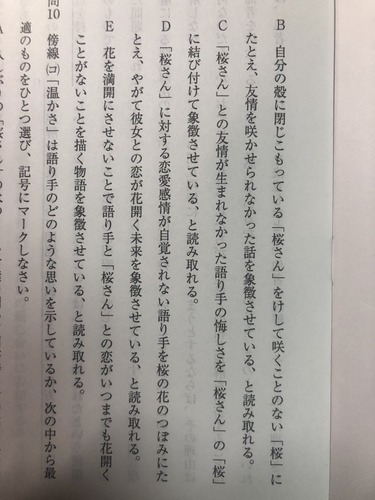 B　自分の殻に閉じこもっている「桜さん」をけして咲くことのない「桜」に
たとえ、友情を咲かせられなかった話を象徴させている、と読み取れる。
C　「桜さん」との友情が生まれなかった語り手の悔しさを「桜さん」の「桜」
に結び付けて象徴させている、と読み取れる。
D　「桜さん」に対する恋愛感情が自覚されない語り手を桜の花のつぼみにた
とえ、やがて彼女との恋が花開く未来を象徴させている、と読み取れる。
E　花を満開にさせないことで語り手と「桜さん」との恋がいつまでも花開く
ことがないことを描く物語を象徴させている、と読み取れる。
問10　傍線㋙「温かさ」は語り手のどのような思いを示しているか、次の中から最
適のものをひとつ選び、記号にマークしなさい。